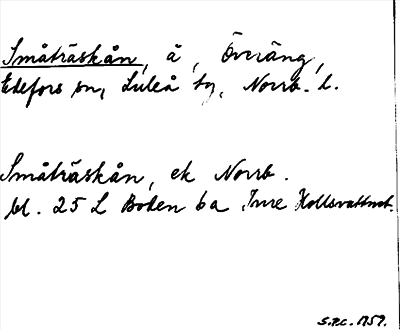 Småträskån, å, Överäng,
Edefors sn, Luleå tg, Norrb. l.
Småträskån, ek Norrb.
bl. 25 L Boden 6a Inre Kollsvattnet.
S.P.C. 1959.